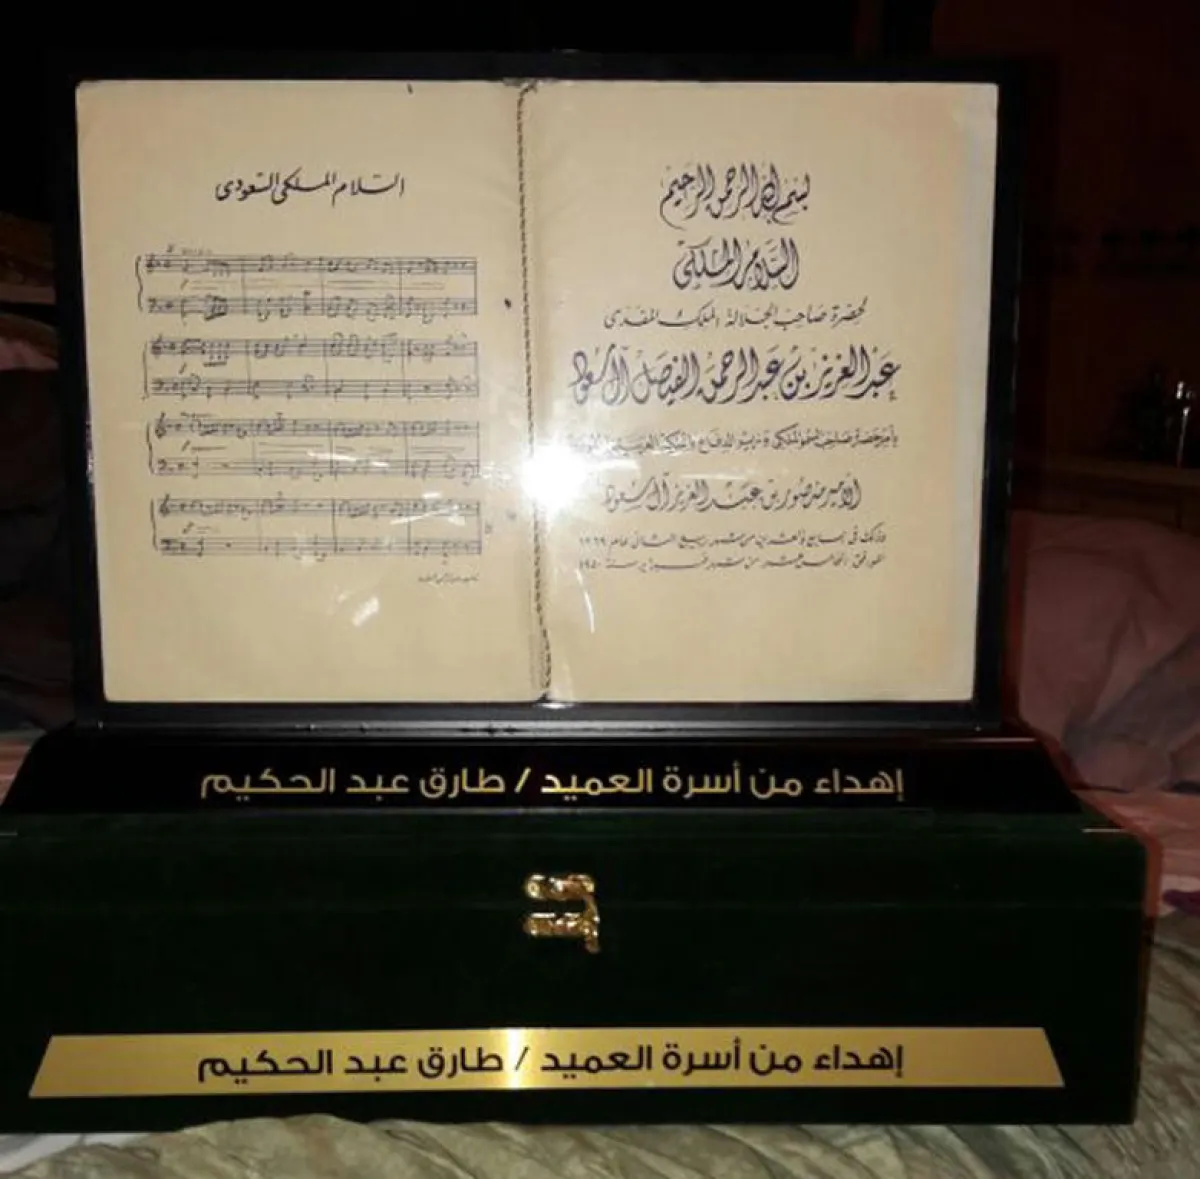 بسم الله الرحمن الرحيم
السلام الملكي
لحضرة صاحب الجلالة الملك المفدى
عبد العزيز بن عبد الرحمن الفيصل آل سعود
بأمر حضرة صاحب السمو الملكي وزير الدفاع بالمملكة العربية
الأمير منصور بن عبد العزيز آل سعود
وذلك في من شهر ربيع الثاني عام ١٣٦٩
الموافق الخامس عشر من شهر فبراير سنة ١٩٥٠
السلام الملكي السعودي
إهداء من أسرة العميد / طارق عبد الحكيم
إهداء من أسرة العميد / طارق عبد الحكيم